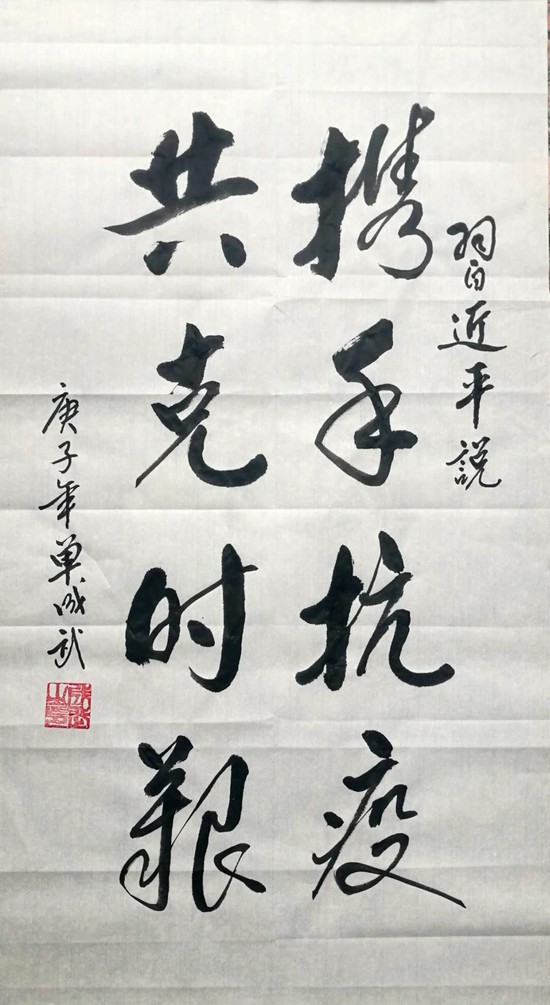 習近平説
携手抗疫
共克时艱
庚子年单成武